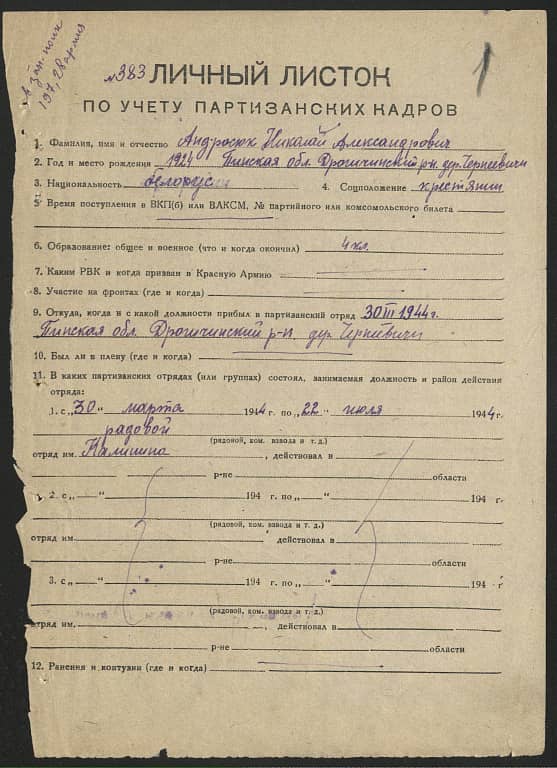 в зап. полк
197, 28 армия
№383 ЛИЧНЫЙ ЛИСТОК
1
ПО УЧЕТУ ПАРТИЗАНСКИХ КАДРОВ
1. Фамилия, имя и отчество Андросюк Николай Александрович
2. Год и место рождения 1924 Пинская обл. Дрогичинский р-н. дер. Чернеевичи
3. Национальность белорус 4. Соцположение крестянин
5. Время поступления в ВКП(б) или ВЛКСМ, № партийного или комсомольского билета
6. Образование: общее и военное (что и когда окончил) 4 кл.
7. Каким РВК и когда призван в Красную Армию
8. Участие на фронтах (где и когда)
9. Откуда, когда и с какой должности прибыл в партизанский отряд 30 III 1944 г.
Пинская обл. Дрогичинский р-н. дер. Чернеевичи
10. Был ли в плену (где и когда)
11. В каких партизанских отрядах (или группах) состоял, занимаемая должность и район действия
отряда:
1. с „30" марта 1944 г. по „22" июля 1944 г.
рядовой
(рядовой, ком. взвода и т. д.)
отряд им. Калинина, действовал в
р-не области
2. с „ " 194 г. по „ " 194 г.
(рядовой, ком. взвода и т. д.)
отряд им. , действовал в
р-не области
3. с „ " 194 г. по „ " 194 г
(рядовой, ком. взвода и т. д.)
отряд им. , действовал в
р-не области
12. Ранения и контузии (где и когда)